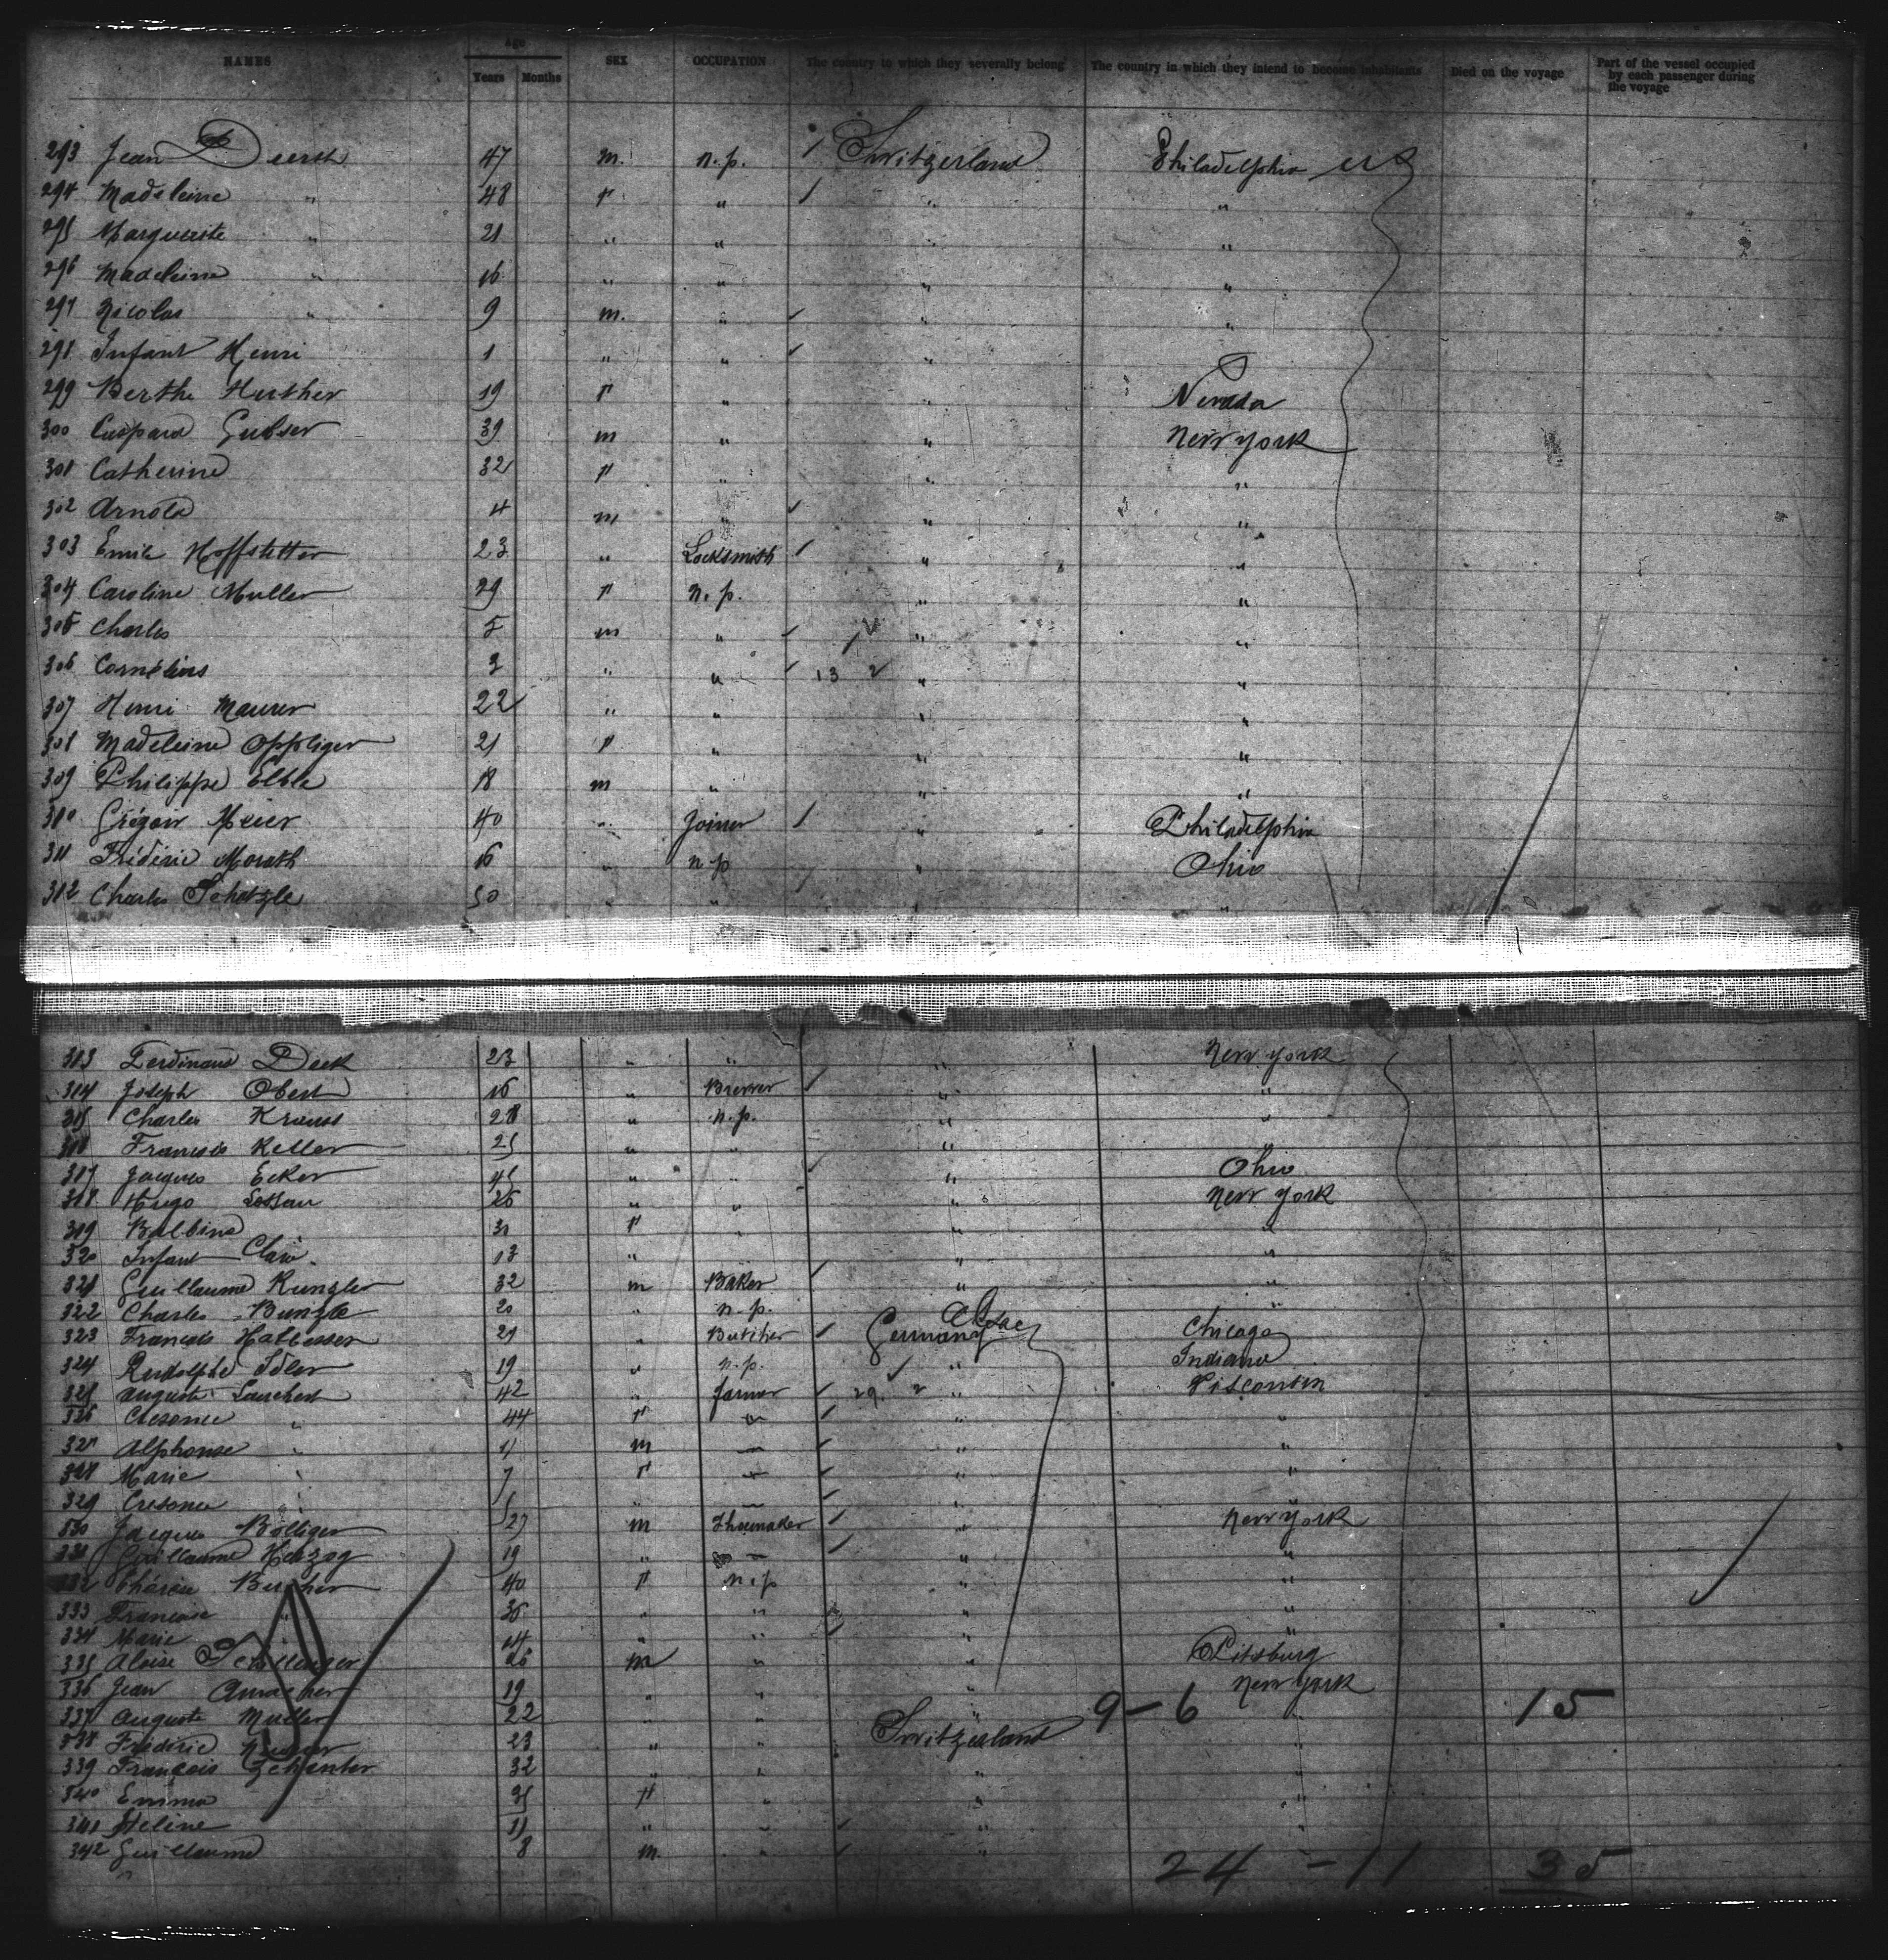 NAMES Age SEX OCCUPATION The country to which they severally belong The country in which they intend to become inhabitants Died on the voyage Part of the vessel occupied by each passenger during the voyage
Years Months
293 Jean 47 m. n.p. Switzerland Philadelphia
294 Madeleine " 48 f " " "
295 Marguerite " 21 " " " "
296 Madeleine " 16 " " " "
297 Nicolas " 9 m. " " "
298 Infant Henri 1 " " "
299 Berthe Hurther 19 f " " Nevada
300 Caspard Gubser 39 m " " New york
301 Catherine 32 f " " "
302 Arnold 4 m " " "
303 Emile Hoffstetter 23 " Locksmith " "
304 Caroline Muller 29 f n.p. " "
305 Charles 5 m " " "
306 Cornélius 3 " " 13 2 " "
307 Henri Maurer 22 " " " "
308 Madeleine Oppliger 21 f " " "
309 Philippe Elble 18 m " " "
310 Grégoir Meier 40 " Joiner " Philadelphia
311 Fréderic Morath 16 " n.p " Ohio
312 Charles Schätzle 50 " " " "
313 Ferdinand Deck 23 " " " New york
314 Joseph Obert 16 " Brewer " "
315 Charles Krauss 28 " n.p. " "
316 François Keller 25 " " " "
317 Jacques Ecker 45 " " " Ohio
318 Hugo Lossau 26 " " " New york
319 Balbine 31 f " " "
320 Infant Clair 13 " " "
321 Guillaume Kunzler 32 m Baker " "
322 Charles Bunzle 20 " n.p. " "
323 François Habbesser 21 " Butcher Germany Alsace Chicago
324 Rudolphe Idler 19 " n.p. " Indiana
325 Auguste Lanchert 42 " farmer 29 2 " Wisconsin
326 " 44 f " " "
327 Alphonse " 11 m — " "
328 Marie " 7 f — " "
329 " — "
330 Jacques Bolliger 27 m Shoemaker " New york
331 Guillaume Herzog 19 " — " "
332 Bucher 40 f n.p " "
333 Françoise " 36 " " " "
334 Marie 14 " " "
335 Aloise 26 m " Pittsburg
336 Jean Amacher 19 " " New york
337 Auguste Muller 22 " " " 9-6 15
338 Fréderic 23 " " Switzerland "
339 François 32 " " " "
340 Emma 35 f " " "
341 Héline 11 " " " "
342 Guillaume 8 m. " "
24 - 11 35